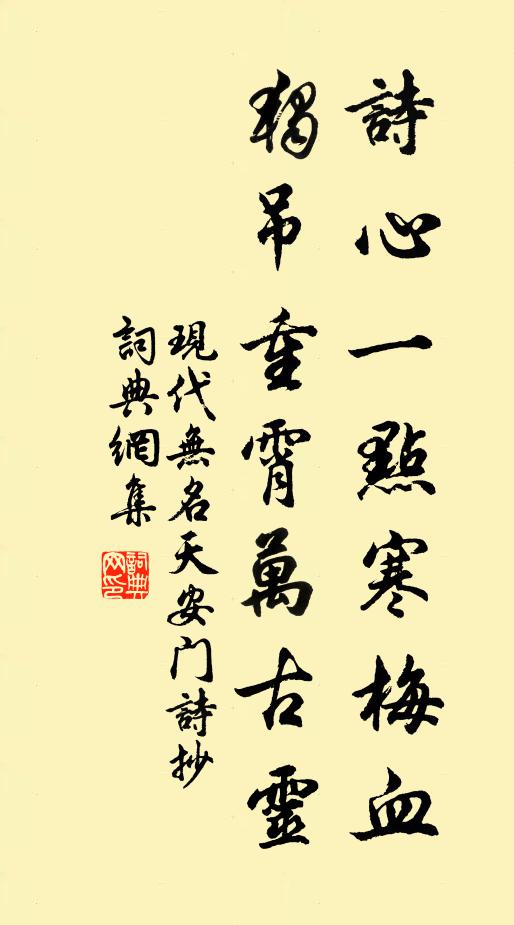 詩心一點寒梅血
獨吊重霄萬古靈
現代無名天安门詩抄
詞典網集
詞典网印